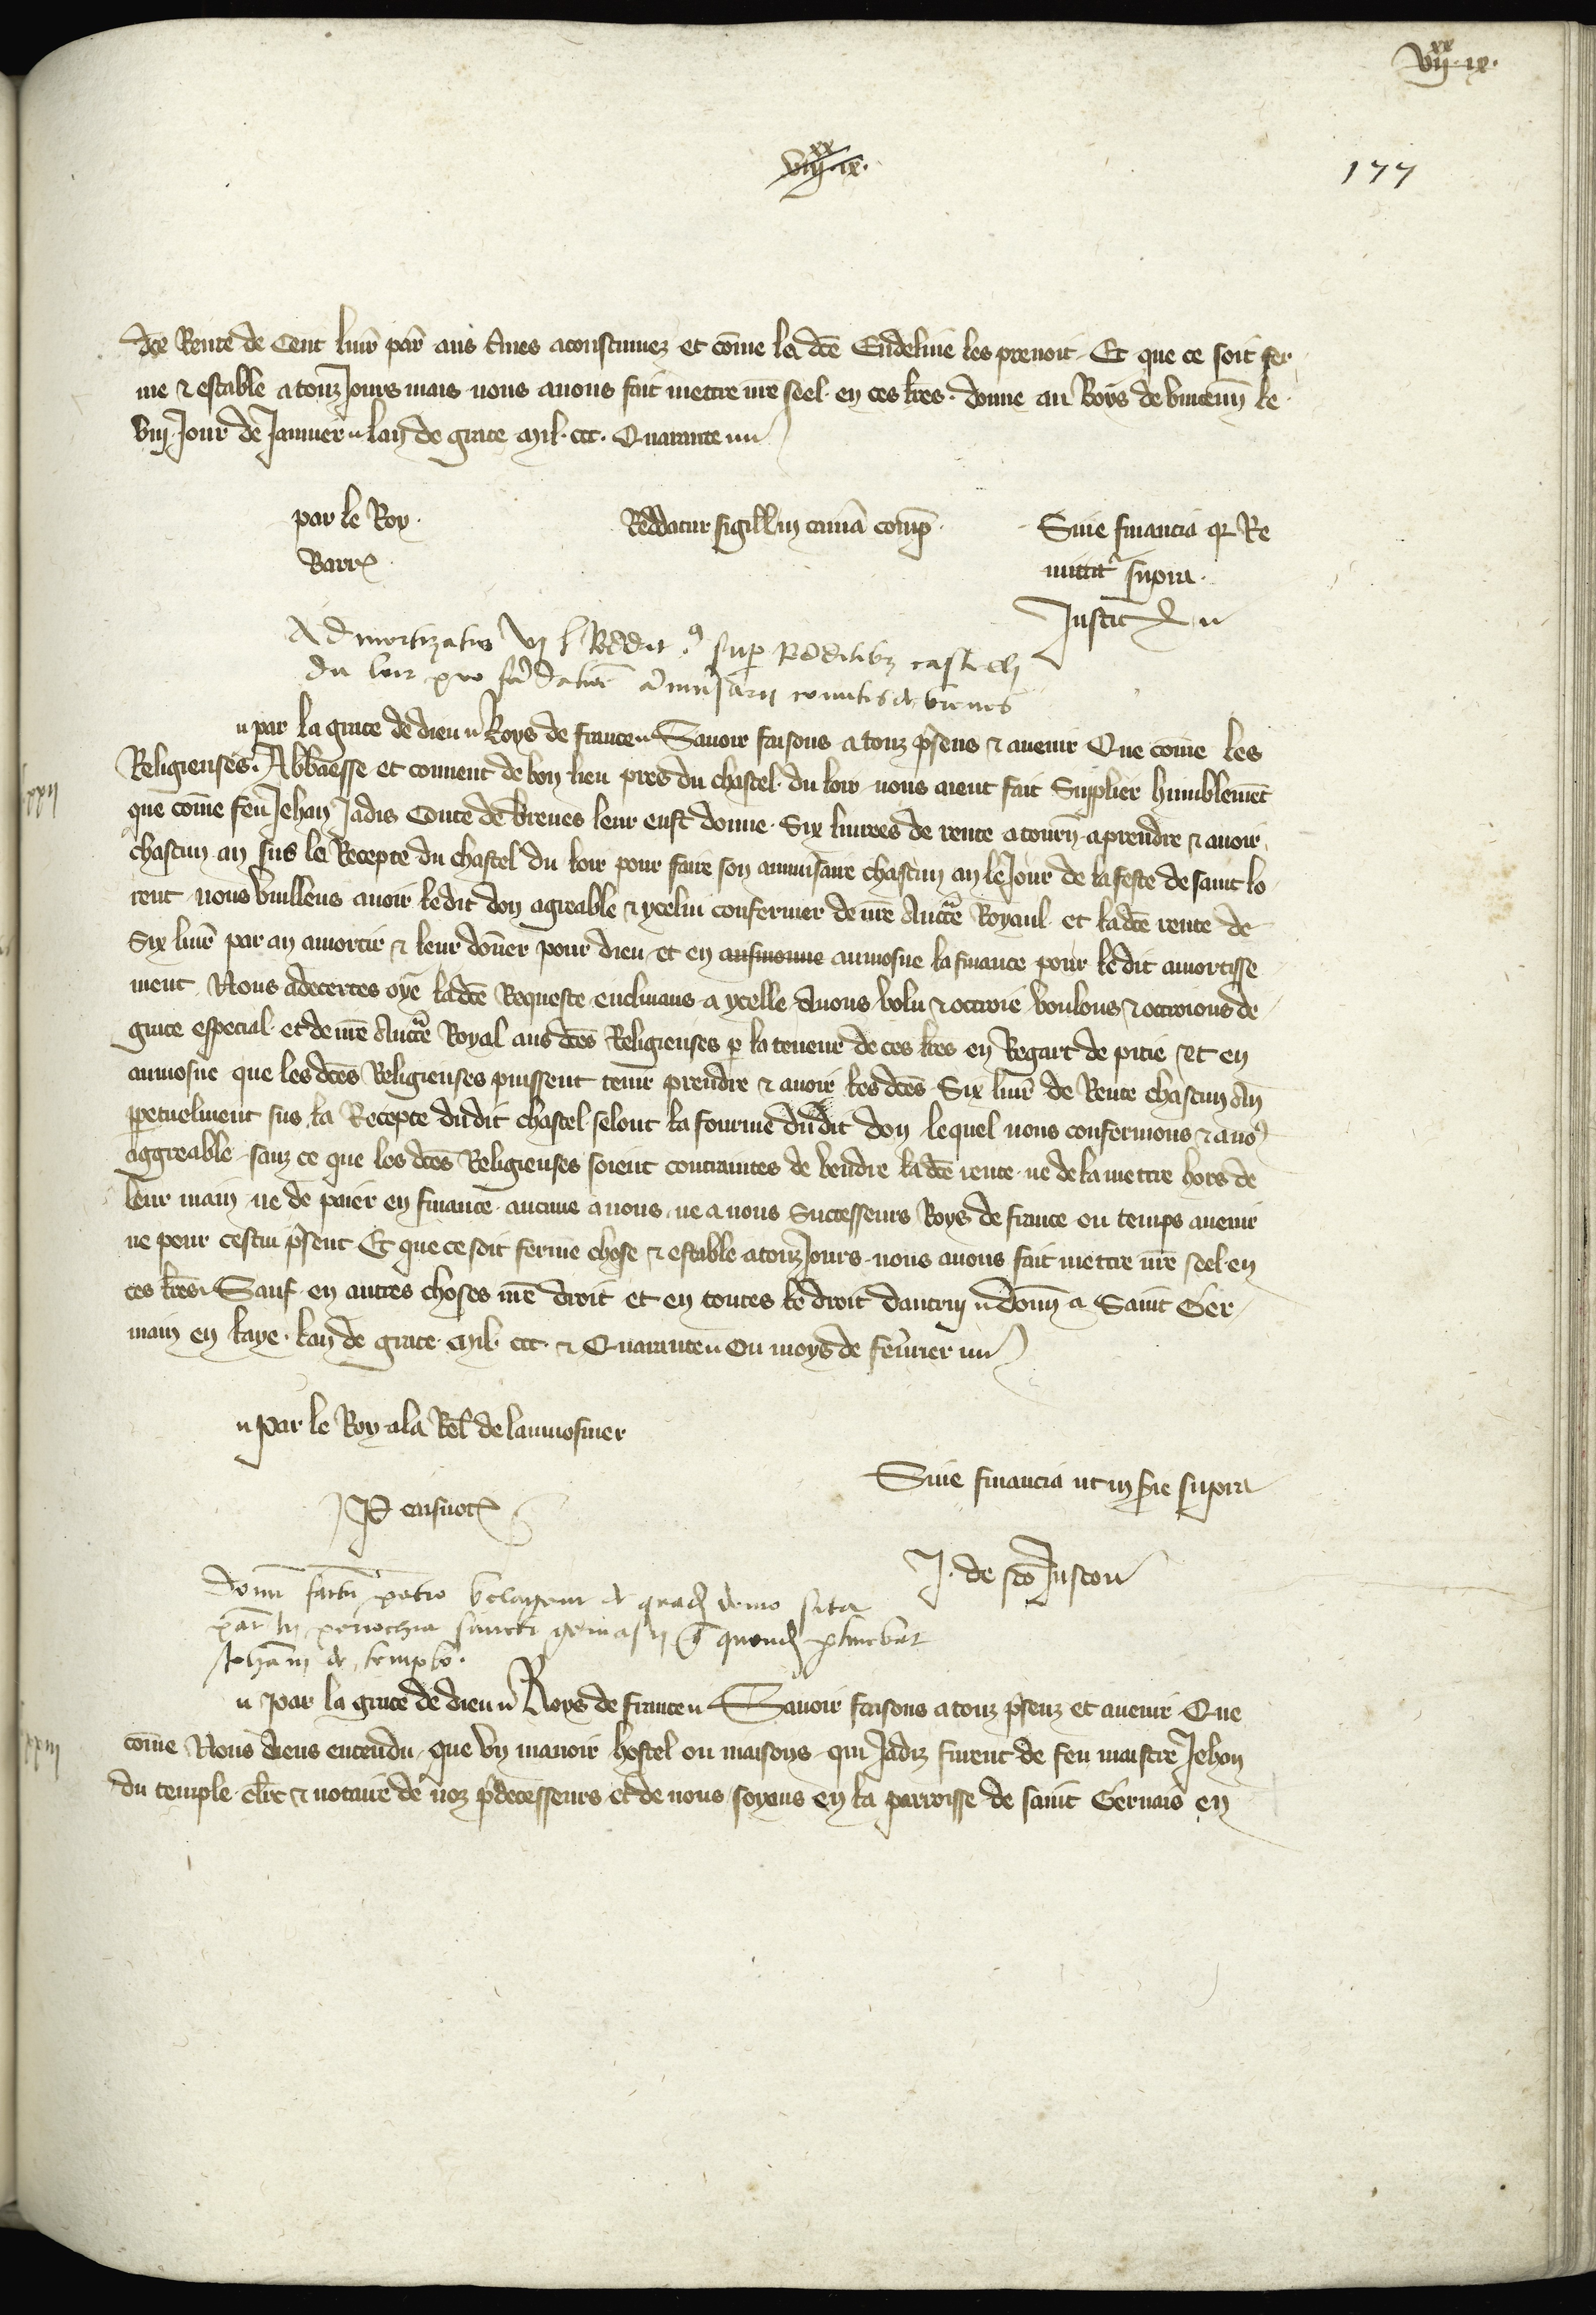 VII.XX IX.
VIII.XX IX.
177
dce Rente de Cent livr par aus tmes acoustumez et come la dce Endeline les prenoit Et que ce soit fer
me & estable a touz Jours mais nous avons fait mettre nre seel en ces lres. donne au Boys de vincenn le
viij Jour de Janvier lan de grace mil. ccc. Quarante
par le Roy.
Barr
Reddatur sigillu cama comp.
Sine financia qr Re
mittit supra.
Justic
Admortizatio VI l Reddit sup Redditibz castelli
du loir pro fundatione anniversarii comitis de brenes
par la grace de dieu Roys de france Savoir faisons a touz presens & avenir Que come les
Religieuses. Abbaesse et convent de bon lieu pres du chastel du loir nous aient fait Supplier humblemet
que come feu Jehan Jadis Conte de breues leur eust donne Six livrees de rente a tourn a prendre & avoir
chascun an sus la Recepte du chastel du loir pour faire son anniversaire chascun an le Jour de la feste de saint lo
rent nous vuillens avoir le dit don agreable & ycelui confermer de nre Aucte Royaul et la dce rente de
Six livr par an amortir & leur doner pour dieu et en ausmonne aumosne la finance pour le dit amortisse
ment Nous adecertes oye la dce Requeste enclinans a ycelle Avons volu & octroie voulons & octroions de
grace especial et de nre Aucte Royal aus dces Religieuses p la teneur de ces lres en Regart de pitie Et en
aumosne que les dces Religieuses puissent tenir prendre & avoir les dces Six livr de Rente chascun An
ppetuelment sus la Recepte du dit chastel selont la fourme du dit don lequel nous confermons & avos
aggreable sanz ce que les dces Religieuses soient contraintes de vendre la dce rente ne de la mettre hors de
leur main ne de paier en finance aucune a nous ne a nous Successeurs Roys de france ou temps avenir
ne pour cestui psent Et que ce soit ferme chose & estable a touz Jours nous avons fait mettre nre seel en
ces lres Sauf en autres choses nre droit et en toutes le droit dautruy donn a Saint Ger
main en laye. lan de grace mil ccc. & Quarante Ou moys de fevrier
par le Roy a la Rel de laumosnier
Sine financia ut in sie supra
J. de sco Justou
Donu factu petro de quad domo sita
par in perrochia sancti gervasii q quond ptinebat
Johani de templo.
par la grace de dieu Roys de france Savoir faisons a touz psenz et avenir Que
come Nous aiens entendu que un manoir hostel ou maisons qui Jadiz furent de feu maistre Jehan
du temple clerc & notaire de noz predecesseurs et de nous soyans en la parroisse de saint Gervais en